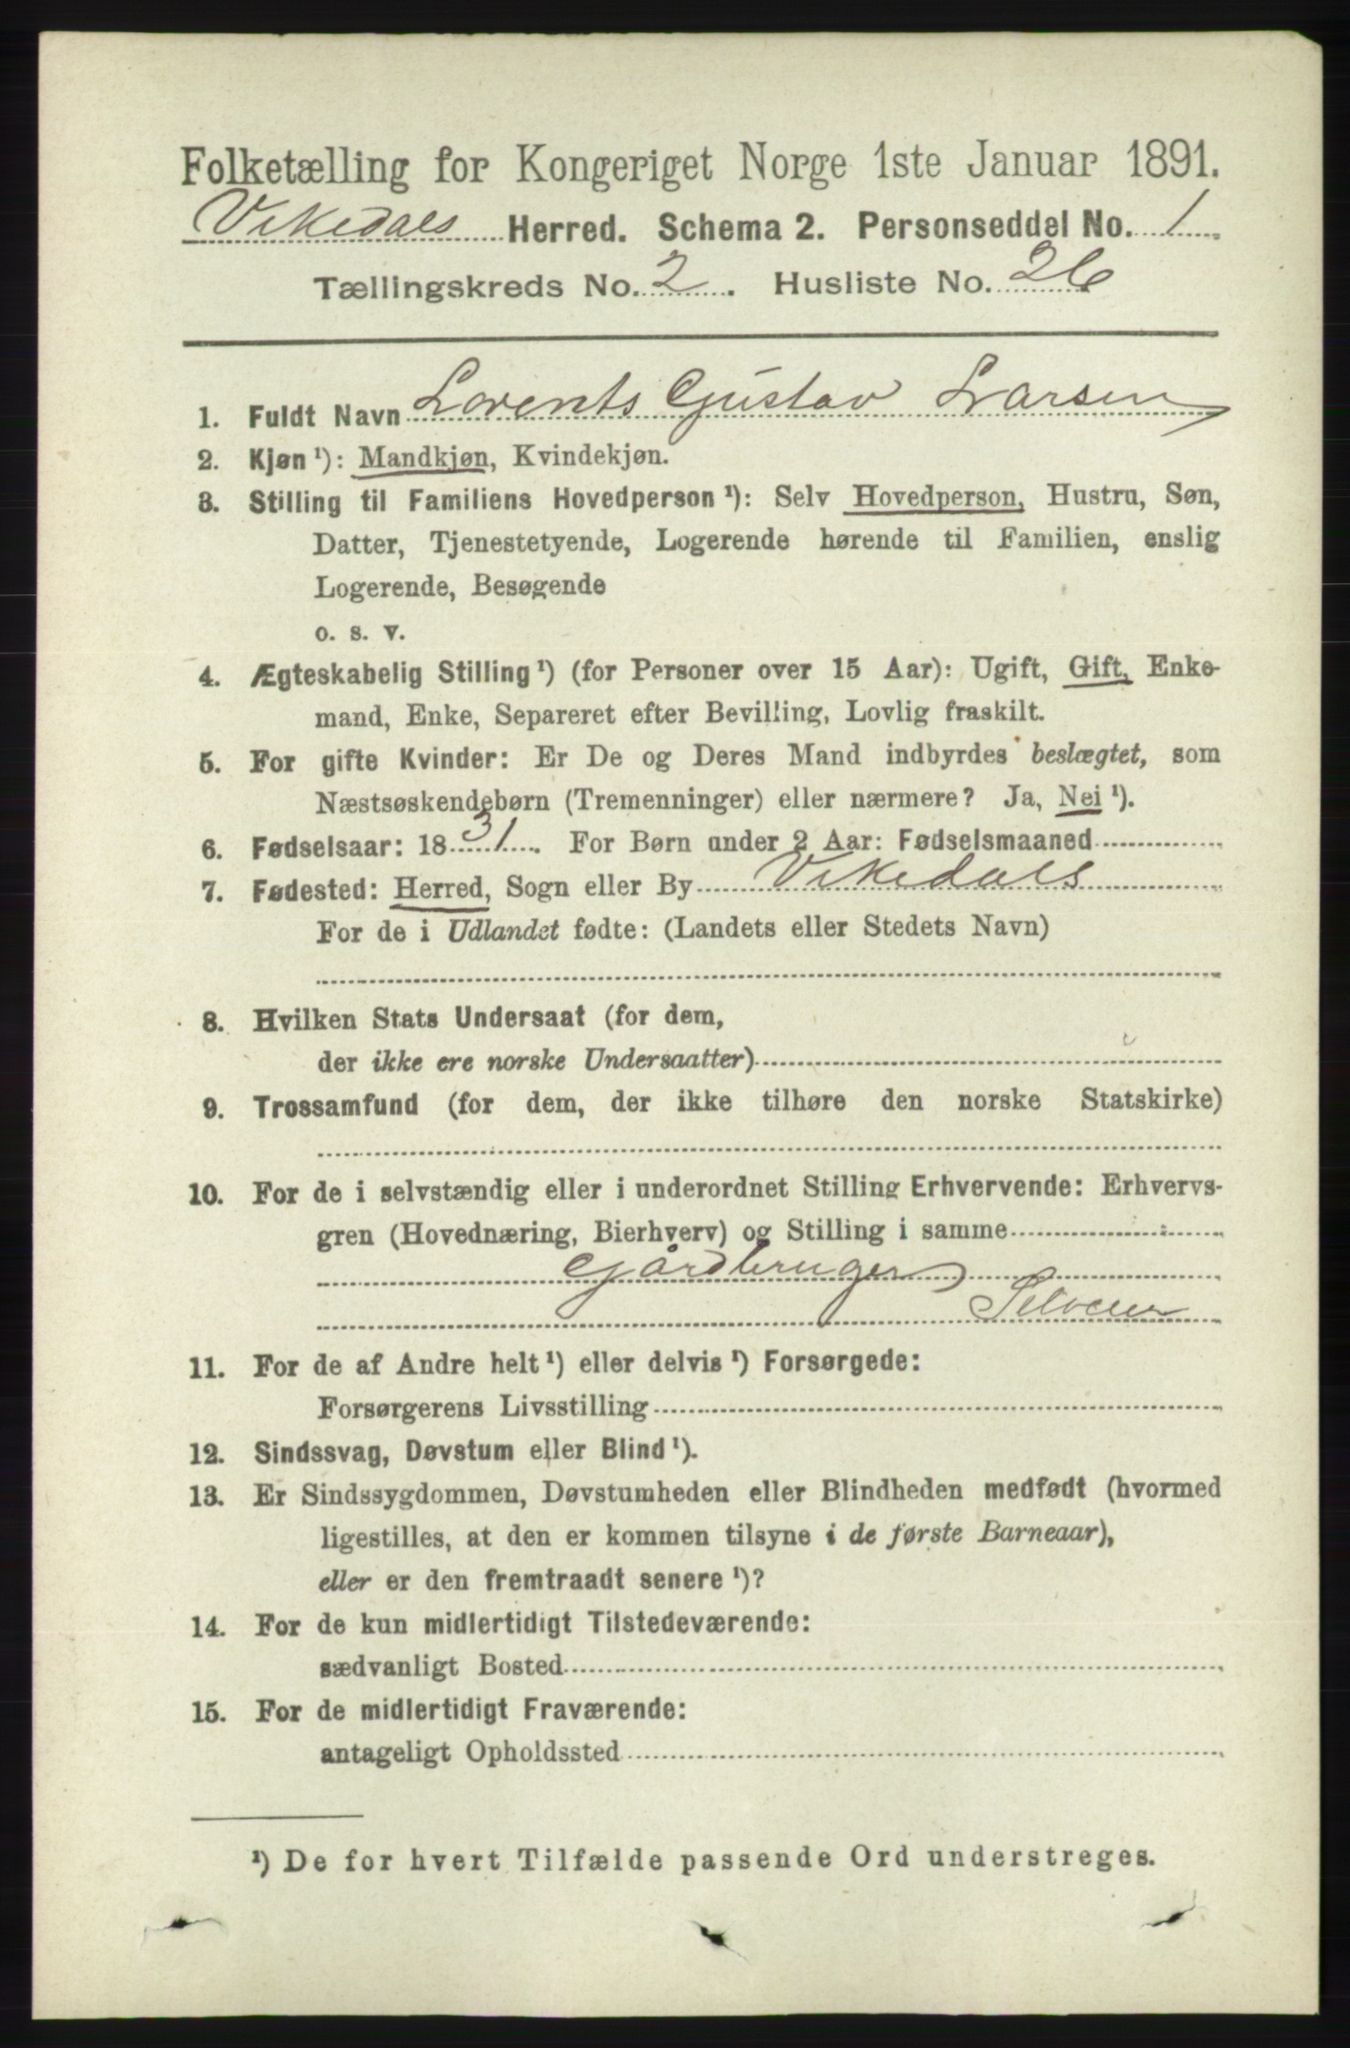 Folketælling for Kongeriget Norge 1ste Januar 1891.
Vikedals Herred. Schema 2. Personseddel No. 1
Tællingskreds No. 2. Husliste No. 26
1. Fuldt Navn Lorents Gustav Larsen
2. Kjøn¹): Mandkjøn, Kvindekjøn.
3. Stilling til Familiens Hovedperson¹): Selv Hovedperson, Hustru, Søn,
Datter, Tjenestetyende, Logerende hørende til Familien, enslig
Logerende, Besøgende
o. s. v.
4. Ægteskabelig Stilling¹) (for Personer over 15 Aar): Ugift, Gift, Enke-
mand, Enke, Separeret efter Bevilling, Lovlig fraskilt.
5. For gifte Kvinder: Er De og Deres Mand indbyrdes beslægtet, som
Næstsøskendebørn (Tremenninger) eller nærmere? Ja, Nei¹).
6. Fødselsaar: 1831. For Børn under 2 Aar: Fødselsmaaned
7. Fødested: Herred, Sogn eller By Vikedals
For de i Udlandet fødte: (Landets eller Stedets Navn)
8. Hvilken Stats Undersaat (for dem,
der ikke ere norske Undersaatter)
9. Trossamfund (for dem, der ikke tilhøre den norske Statskirke)
10. For de i selvstændig eller i underordnet Stilling Erhvervende: Erhvervs-
gren (Hovednæring, Bierhverv) og Stilling i samme
Gårdbruger
Selveier
11. For de af Andre helt¹) eller delvis¹) Forsørgede:
Forsørgerens Livsstilling
12. Sindssvag, Døvstum eller Blind¹).
13. Er Sindssygdommen, Døvstumheden eller Blindheden medfødt (hvormed
ligestilles, at den er kommen tilsyne i de første Barneaar),
eller er den fremtraadt senere¹)?
14. For de kun midlertidigt Tilstedeværende:
sædvanligt Bosted
15. For de midlertidigt Fraværende:
antageligt Opholdssted
¹) De for hvert Tilfælde passende Ord understreges.